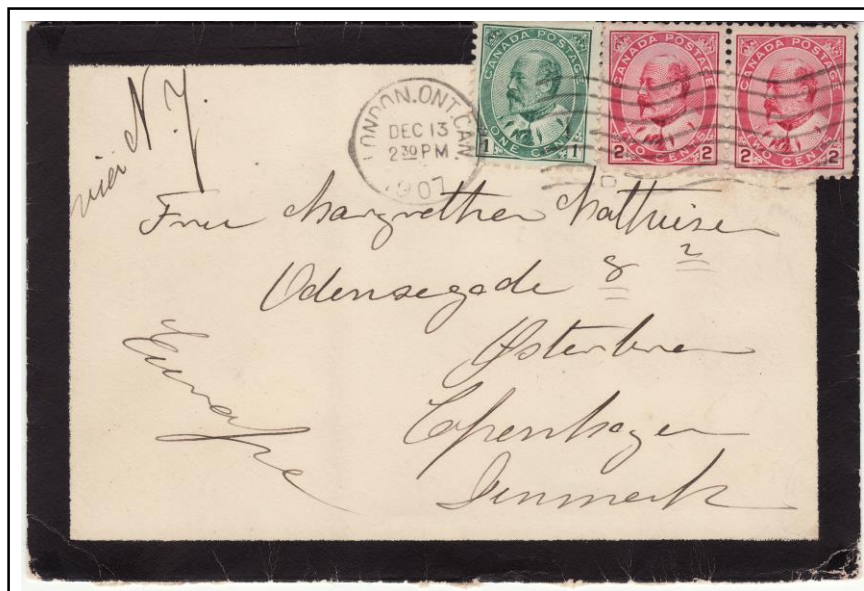 via N.Y.
LONDON.ONT.CAN.
DEC 13
2 30 PM
1907
CANADA POSTAGE
1 ONE CENT 1
CANADA POSTAGE
2 TWO CENTS 2
CANADA POSTAGE
2 TWO CENTS 2
Frue Margrethe
Odensegade 8 2
Østerbro
Copenhagen
Denmark
Europe